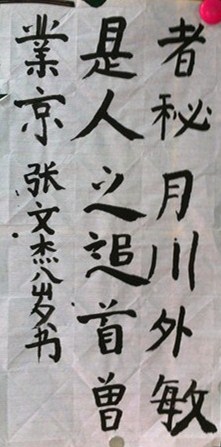 者秘月川外敏
是人之追首曽
業京张文杰八岁书